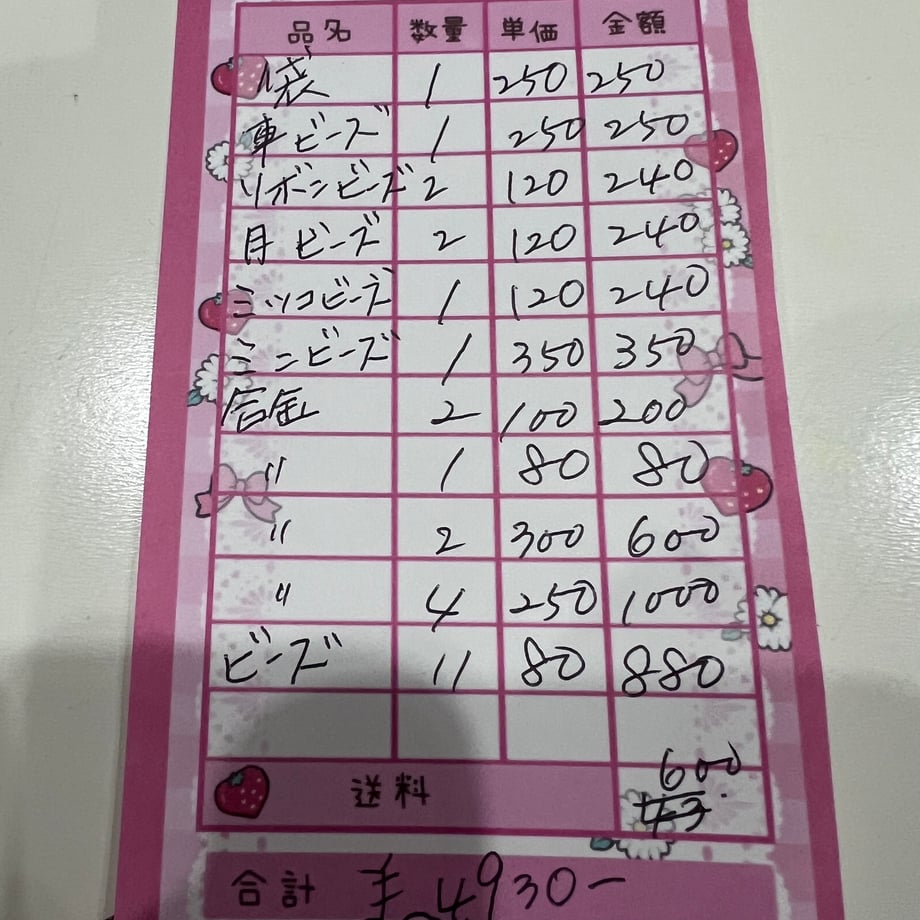 品名 数量 単価 金額
袋 1 250 250
車ビーズ 1 250 250
リボンビーズ 2 120 240
月ビーズ 2 120 240
ミツコビーズ 1 120 240
ミニビーズ 1 350 350
合金 2 100 200
〃 1 80 80
〃 2 300 600
〃 4 250 1000
ビーズ 11 80 880
送料 600
合計 ¥4930-